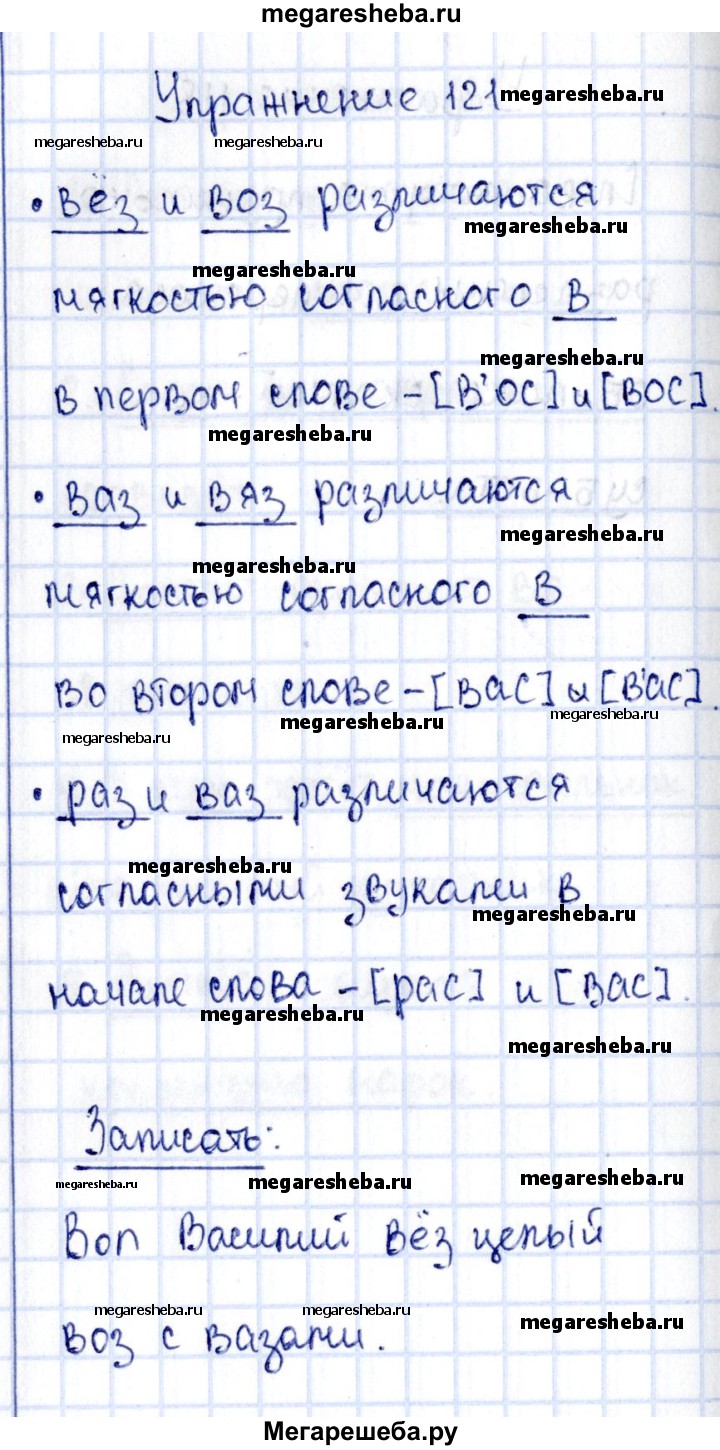 megaresheba.ru
Упражнение 121
megaresheba.ru
megaresheba.ru megaresheba.ru
• вёз и воз различаются
megaresheba.ru
megaresheba.ru
мягкостью согласного в
megaresheba.ru
в первом слове – [в'ос] и [вос].
megaresheba.ru
• ваз и вяз различаются
megaresheba.ru
megaresheba.ru
мягкостью согласного в
во втором слове – [вас] и [в'ас].
megaresheba.ru
megaresheba.ru
megaresheba.ru
• раз и ваз различаются
megaresheba.ru
согласными звуками в
megaresheba.ru
начале слова – [рас] и [вас].
megaresheba.ru
megaresheba.ru
Записать:
megaresheba.ru megaresheba.ru megaresheba.ru
Вол Василий вёз целый
megaresheba.ru megaresheba.ru
megaresheba.ru
воз с вазами.
Мегарешеба.ру